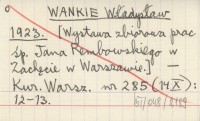 WANKIE Władysław
1923. [Wystawa zbiorowa prac
śp. Jana Rembowskiego w
Zachęcie w Warszawie.] —
Kur. Warsz. nr 285 (14 X):
12-13.